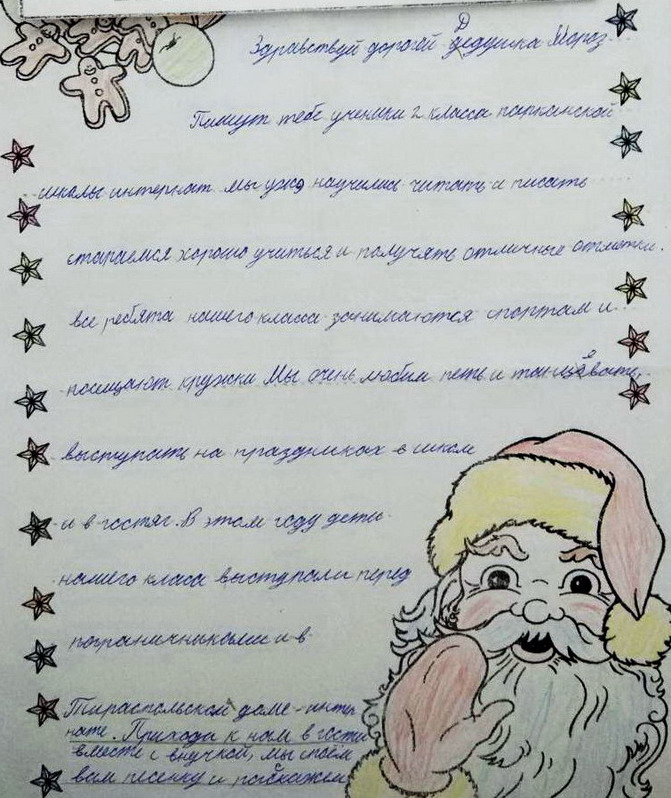 Здравствуй дорогой Дедушка Мороз.
Пишут тебе ученики 2 класса парканской
школы интернат мы уже научились читать и писать
стараемся хорошо учиться и получять отличные отметки.
все ребята нашего класса занимаются спортам и
посищают кружки Мы очень любим петь и танцевать,
выступать на праздниках в школе
и в гостях. В этом году дети
нашего класа выступали перед
пограничниками и в
Тираспольском доме-интер
нате. Приходи к нам в гости
вместе с внучкой, мы споём
вам песенку и расскажем